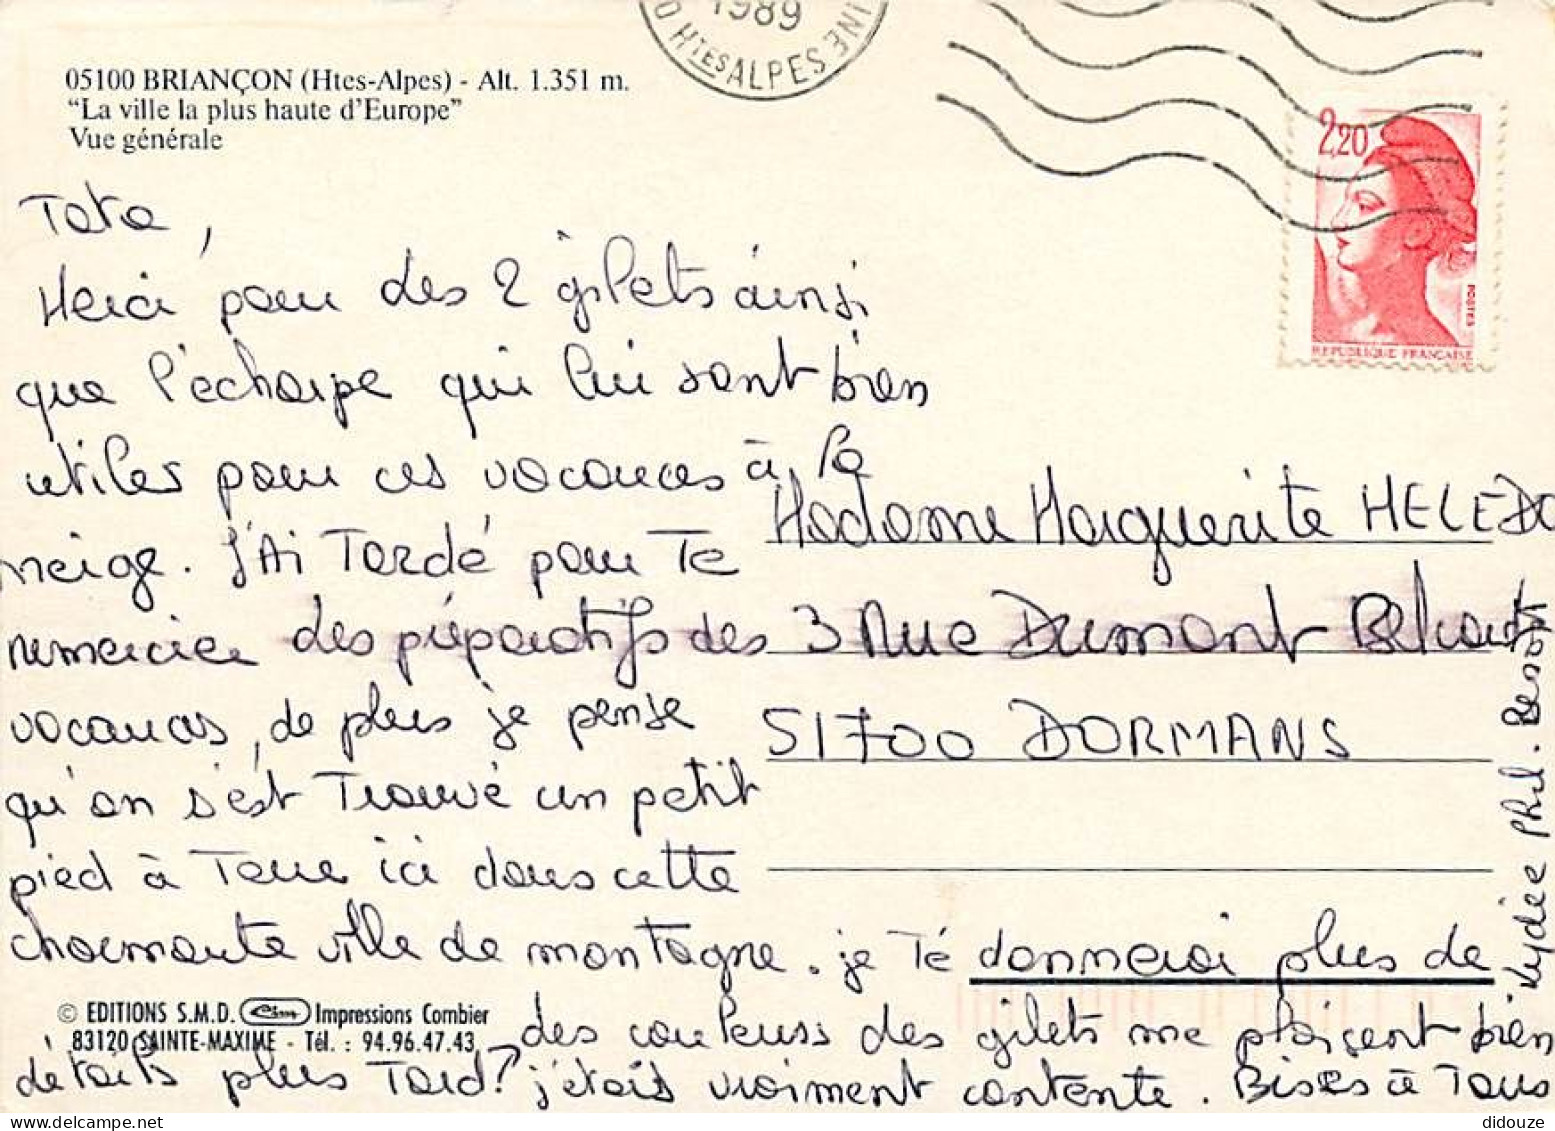 1989
D HTES ALPES INE
05100 BRIANÇON (Htes-Alpes) - Alt. 1.351 m.
"La ville la plus haute d'Europe"
Vue générale
2,20
POSTES
REPUBLIQUE FRANCAISE
Tata,
Merci pour des 2 gilets ainsi
que l'écharpe qui lui sont bien
utiles pour ces vacances à la
neige. J'Ai Tardé pour Te
remercier des préparatifs des
vacances, de plus je pense
qu'on s'est Trouvé un petit
pied à Terre ici dans cette
charmante ville de montagne. je Té donnerai plus de
détails plus Tard?
des couleurs des gilets me plaisent bien
j'étais vraiment contente. Bises à Tous
Lydée Phil. Besson
Madame Marguerite HELEDO
3 Rue Dumont
51700 DORMANS
© EDITIONS S.M.D. Cim Impressions Combier
83120 SAINTE-MAXIME - Tél. : 94.96.47.43
didouze